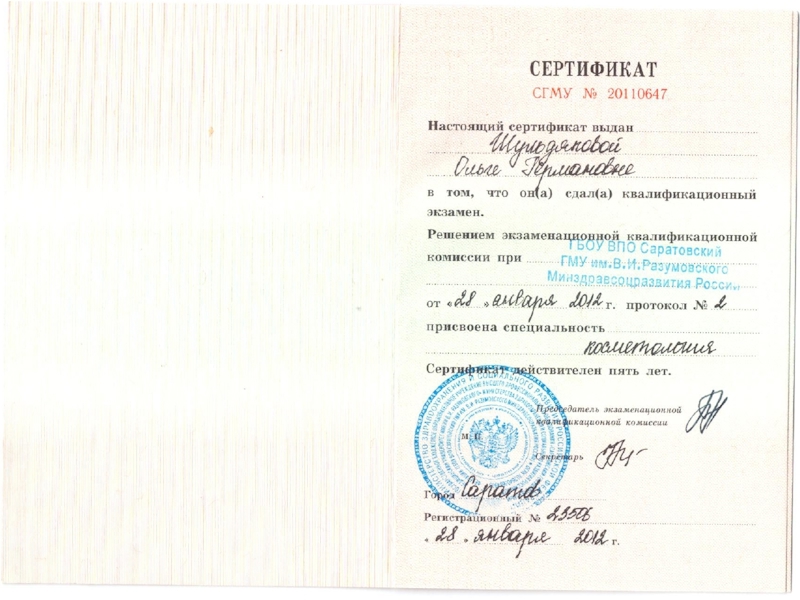 СЕРТИФИКАТ
СГМУ № 20110647
Настоящий сертификат выдан
Шульдяковой
Ольге Германовне
в том, что он(а) сдал(а) квалификационный
экзамен.
Решением экзаменационной квалификационной
комиссии при ГБОУ ВПО Саратовский
ГМУ им.В.И.Разумовского
Минздравсоцразвития России
от «28» января 2012 г. протокол № 2
присвоена специальность
косметология
Сертификат действителен пять лет.
Председатель экзаменационной
квалификационной комиссии
М.П.
Секретарь
Город Саратов
Регистрационный №
«28» января 2012 г.